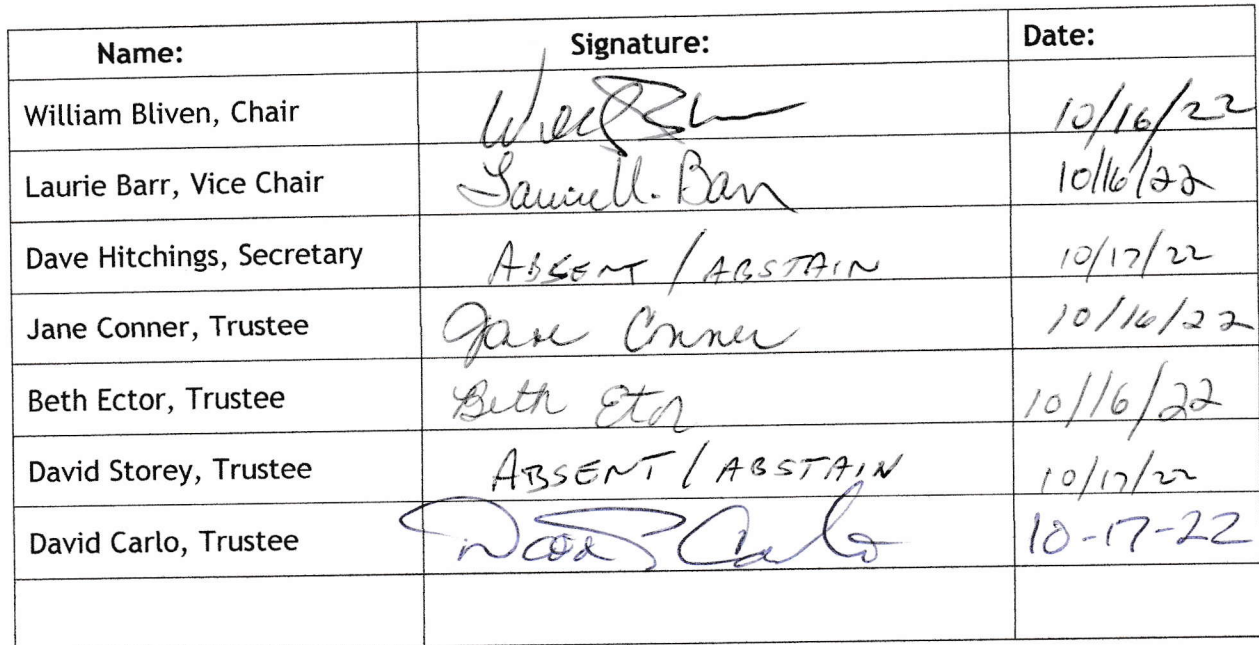 Name: Signature: Date:
William Bliven, Chair 10/16/22
Laurie Barr, Vice Chair Laurie U. Barr 10/16/22
Dave Hitchings, Secretary ABSENT / ABSTAIN 10/17/22
Jane Conner, Trustee Jane Conner 10/16/22
Beth Ector, Trustee Beth Etor 10/16/22
David Storey, Trustee ABSENT / ABSTAIN 10/17/22
David Carlo, Trustee David Carlo 10-17-22